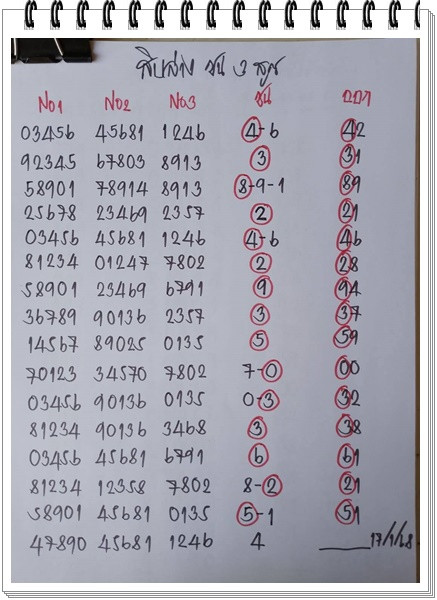 สิบล่าง ชน 3 สูตร
No1 No2 No3 ชน ออก
03456 45681 1246 4-6 42
92345 67803 8913 3 31
58901 78914 8913 8-9-1 89
25678 23469 2357 2 21
03456 45681 1246 4-6 46
81234 01247 7802 2 28
58901 23469 6791 9 94
36789 90136 2357 3 37
14567 89025 0135 5 59
70123 34570 7802 7-0 00
03456 90136 0135 0-3 32
81234 90136 3468 3 38
03456 45681 6791 6 61
81234 12358 7802 8-2 21
58901 45681 0135 5-1 51
47890 45681 1246 4 ____17/1/68